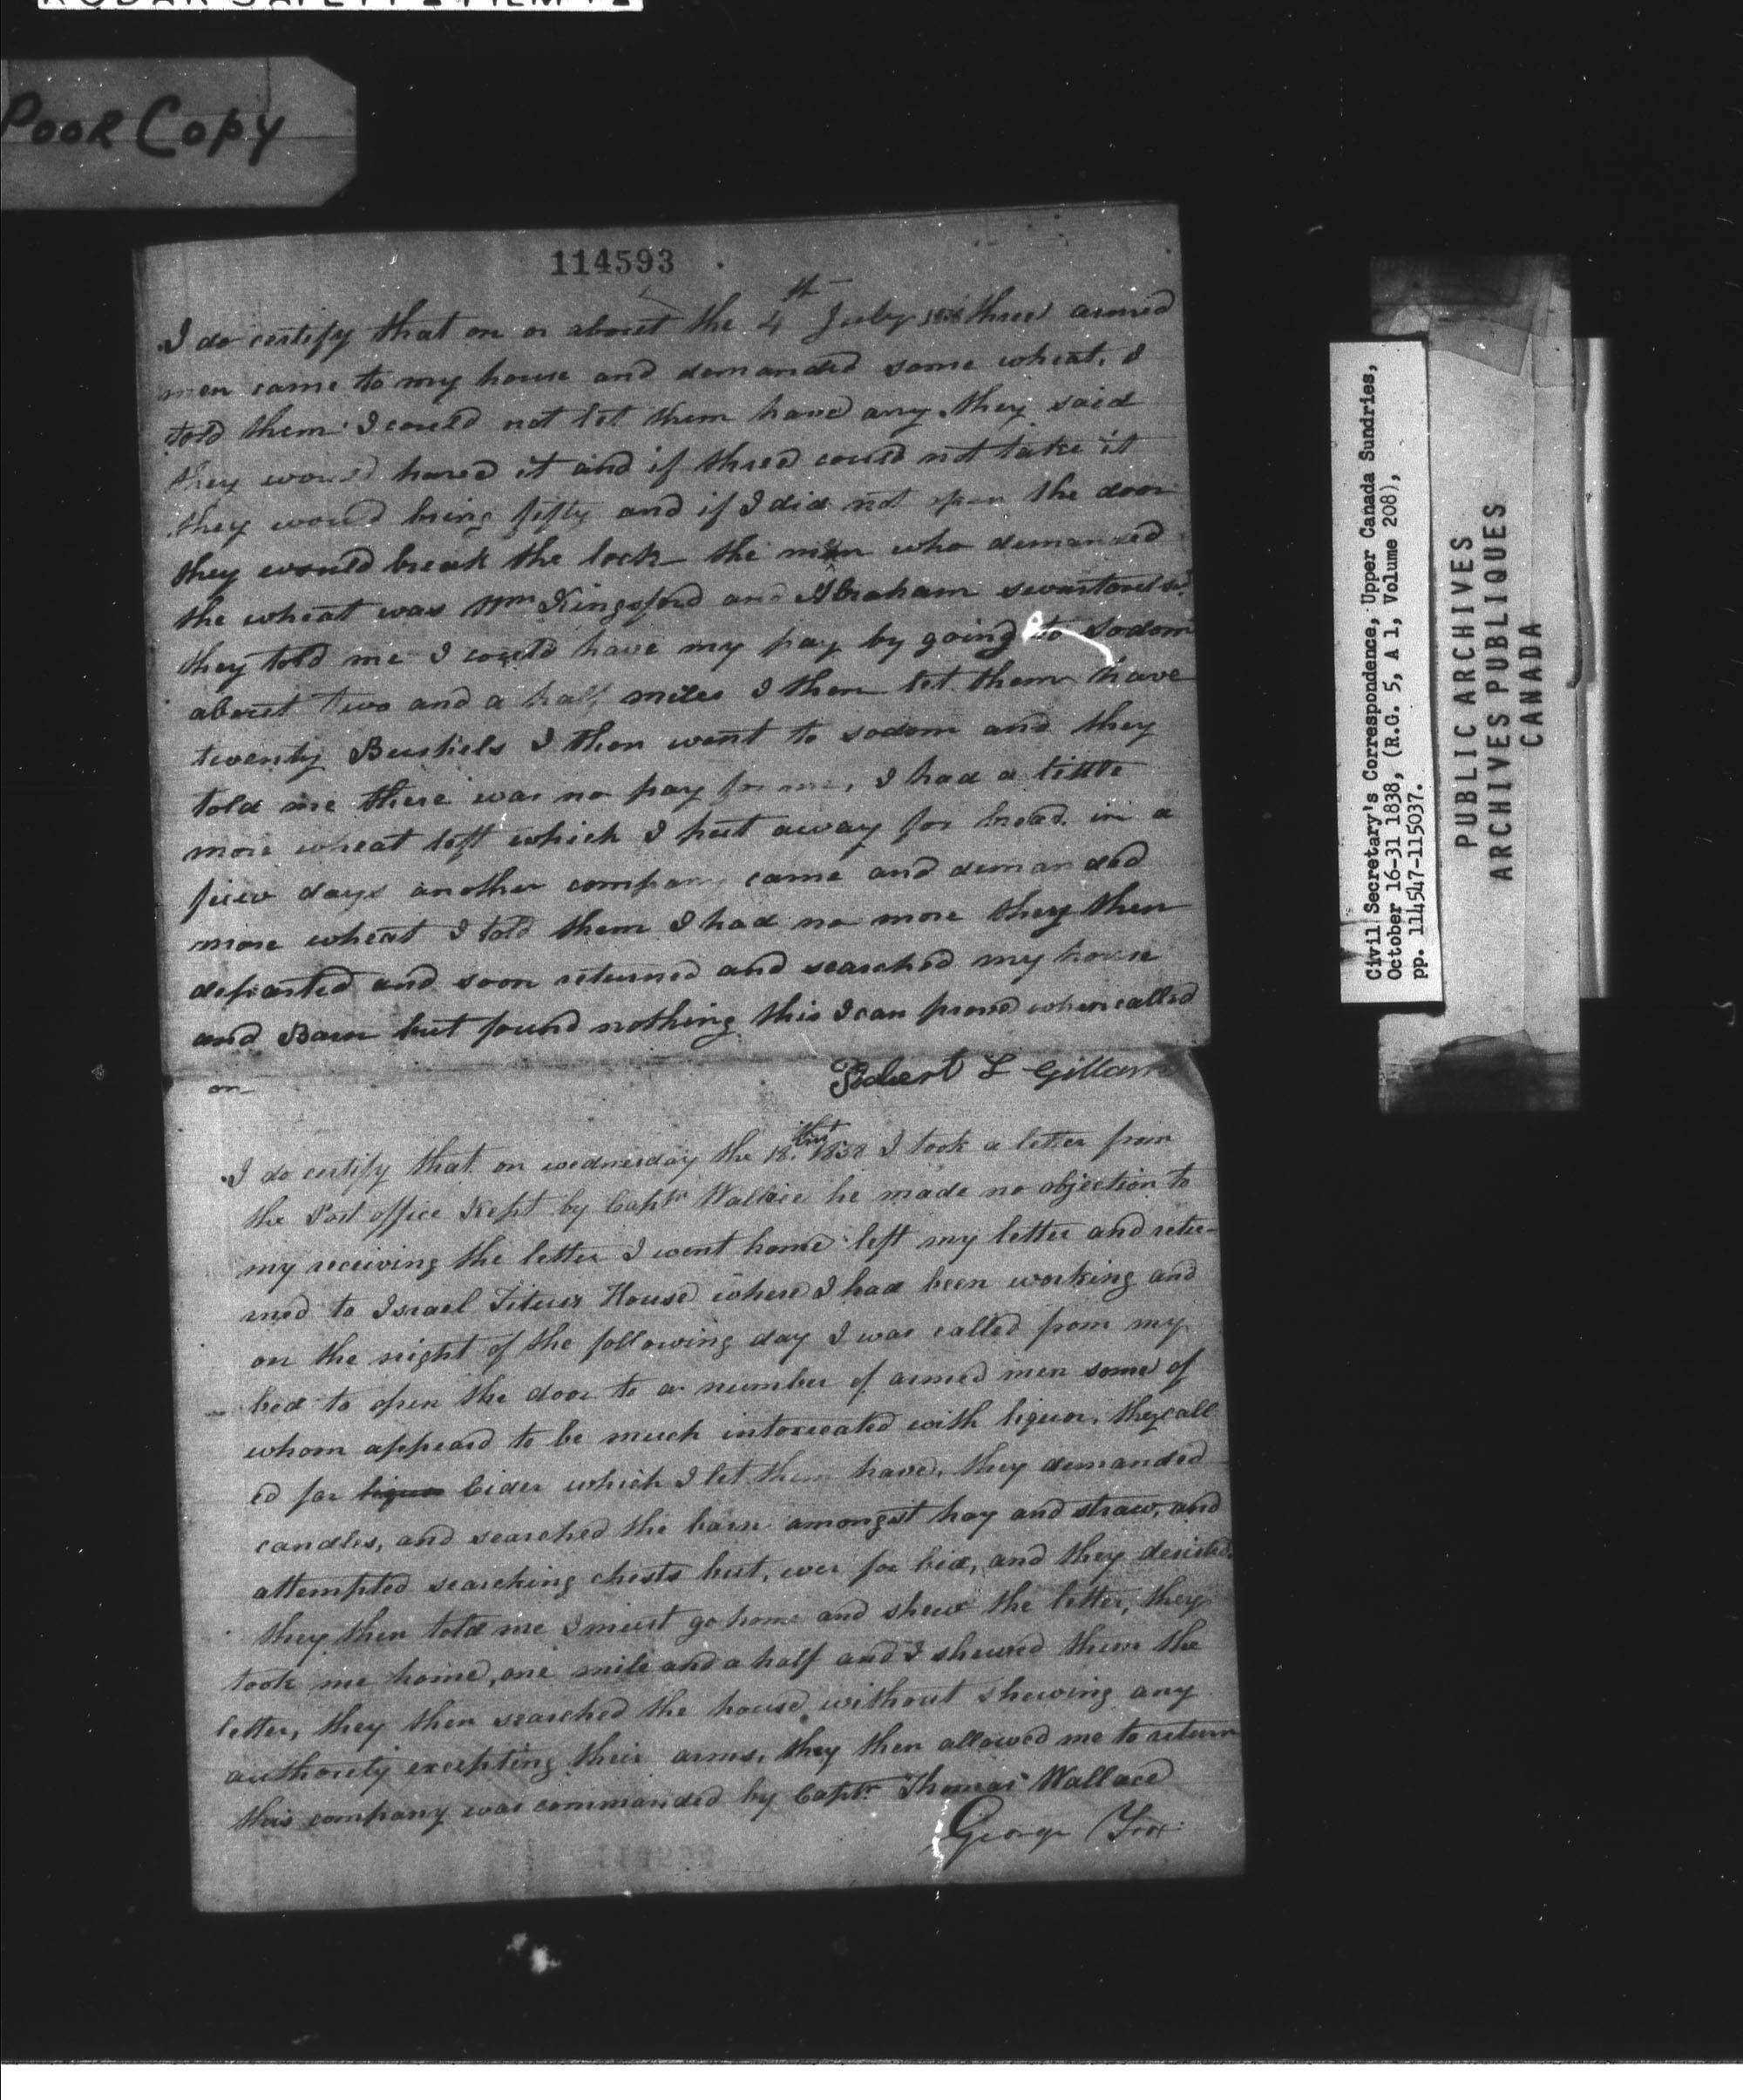 KODAK SAFETY FILM
POOR COPY
114593
I do certify that on or about the 4th July 1838 three armed
men came to my house and demanded some wheat, I
told them I could not let them have any, they said
they would have it and if three could not take it
they would bring fifty and if I did not open the door
they would break the lock the men who demanded
the wheat was Wm Kingsford and Abraham
they told me I could have my pay by going to sodom
about Two and a half miles I then let them have
twenty Bushels I then went to sodom and they
told me there was no pay for me, I had a little
more wheat left which I put away for bread in a
few days another company came and demanded
more wheat I told them I had no more they then
departed and soon returned and searched my house
and Barn but found nothing this I can prove when called
on
Robert L Gillam
I do certify that on wednesday the 18th 1838 I took a letter from
the Post office Kept by Captn Wallace he made no objection to
my receiving the letter I went home left my letter and retur-
ned to Israel House where I had been working and
on the night of the following day I was called from my
bed to open the door to a number of armed men some of
whom appeard to be much intoxicated with liquor, they call
ed for liquor Cider which I let them have, they demanded
candles, and searched the barn amongst hay and straw, and
attempted searching chests but, wer for bid, and they desisted,
they then told me I must go home and shew the letter, they
took me home, one mile and a half and I shewed them the
letter, they then searched the house, without shewing any
authority excepting their arms, they then allowed me to return
this company was commanded by Captn Thomas Wallace
George Fox
Civil Secretary's Correspondence, Upper Canada Sundries,
October 16-31 1838, (R.G. 5, A 1, Volume 208),
pp. 114547-115037.
PUBLIC ARCHIVES
ARCHIVES PUBLIQUES
CANADA